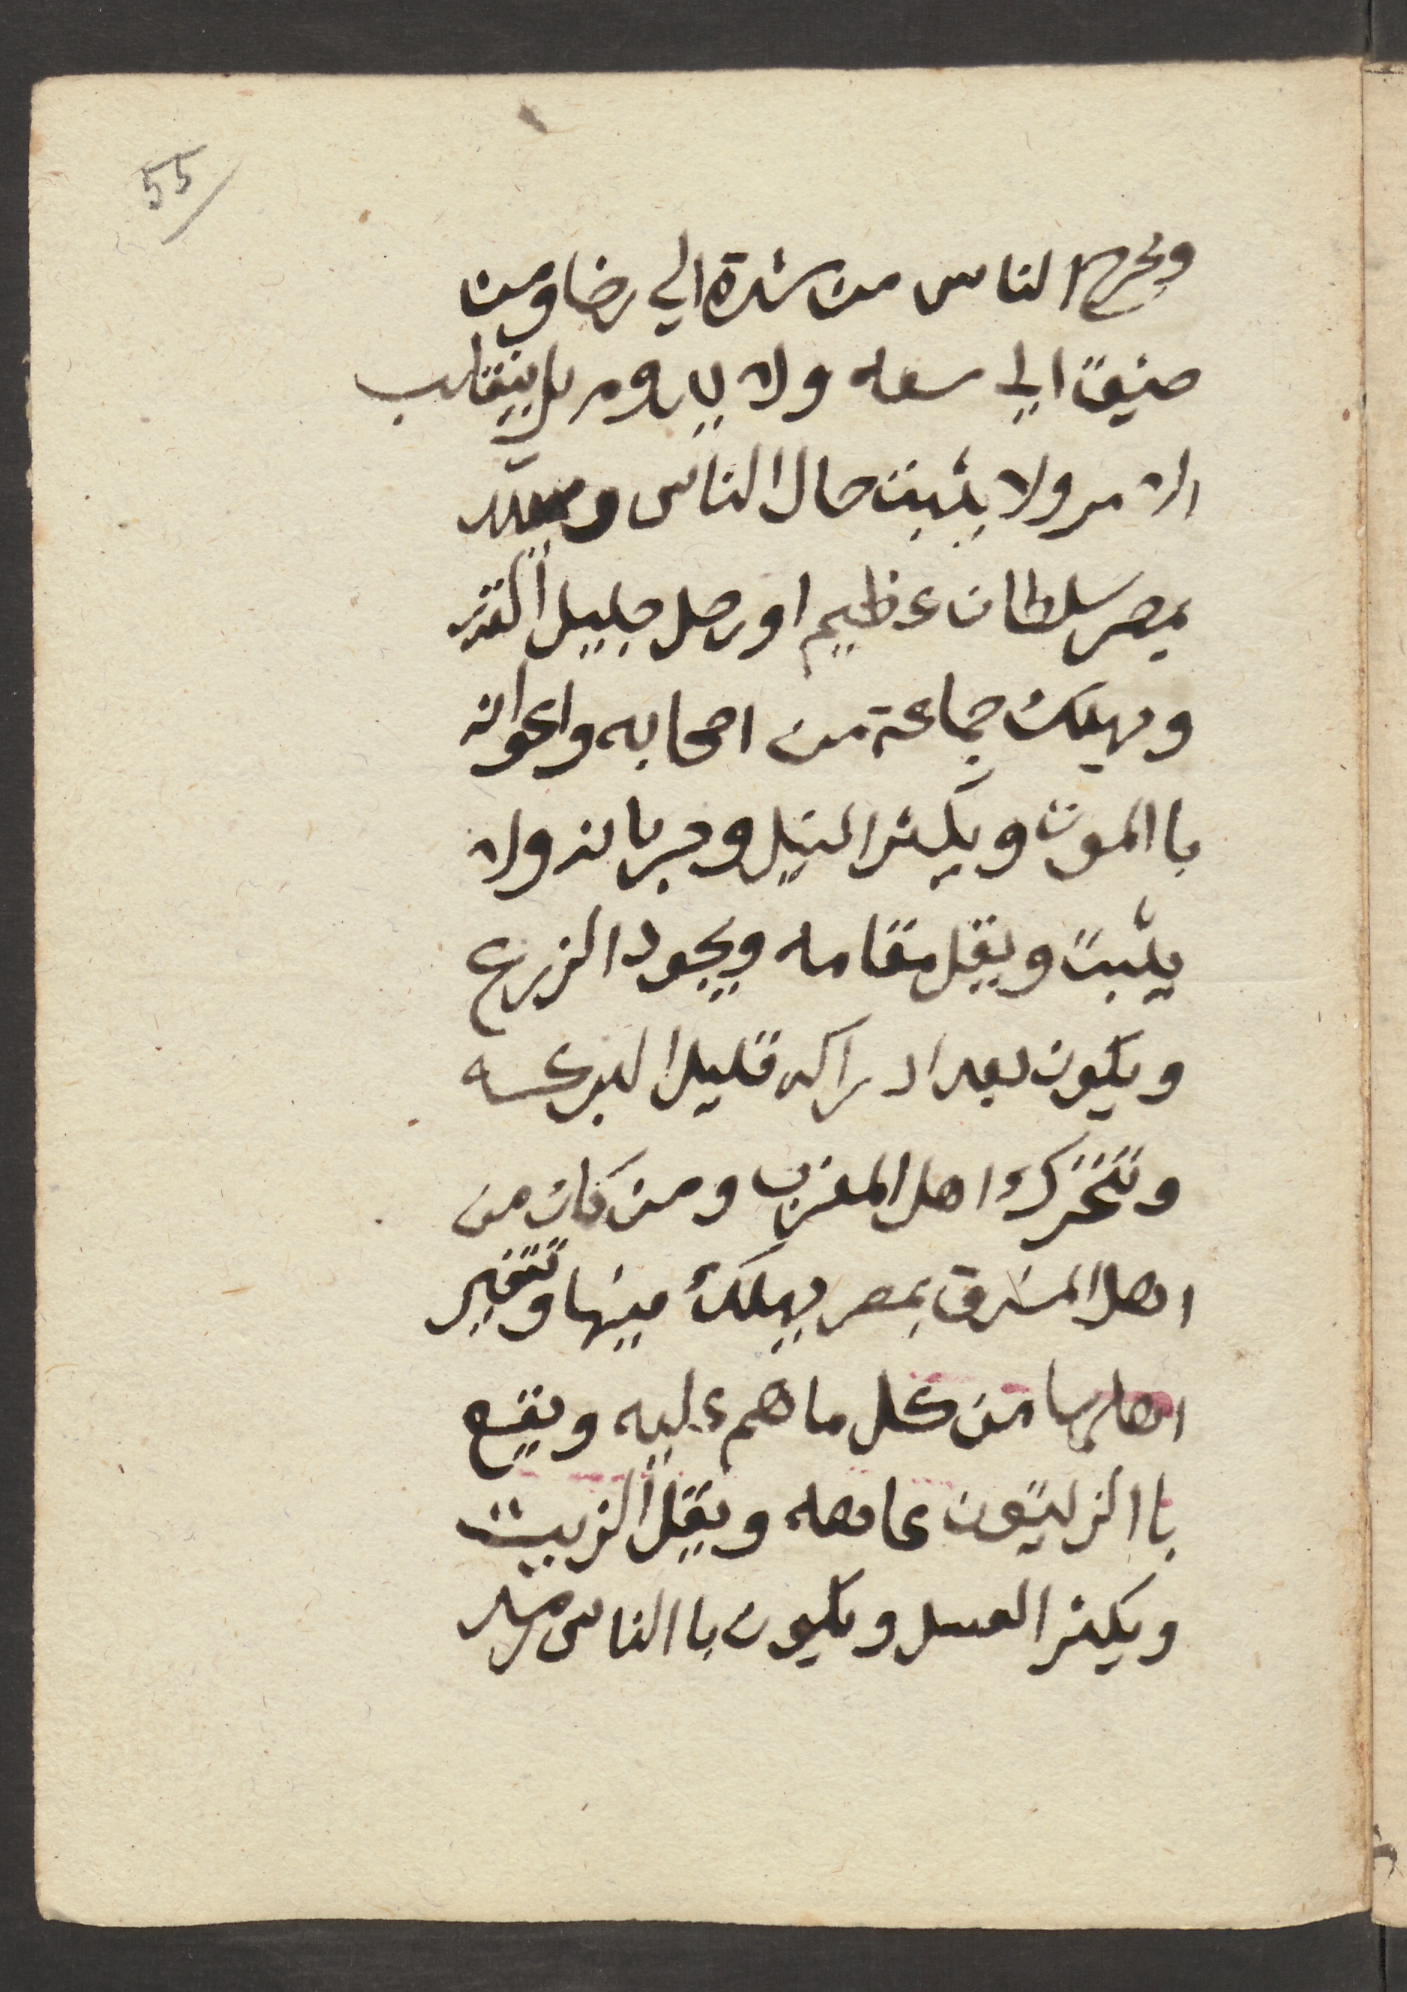 55
ويخرج الناس من شدة الي رضا ومن
ضيق الي سعه ولا يدوم بل ينقلب
الامر ولا يثبت حال الناس
بمصر سلطان عظيم او رجل جليل القدر
ويهلك جماعة من اصحابه واعوانه
با الموت ويكثر النيل وجريانه ولا
يثبت ويقل مقامه ويجود الزرع
ويكون بعد ادراكه قليل البركه
وتتحرك اهل المغرب ومن كان من
اهل المشرق بمصر يهلك منها وتتغير
اهلها من كل ما هم عليه ويقع
با الزيتون عاهه ويقل الزييت
ويكثر العسل ويكون با الناس